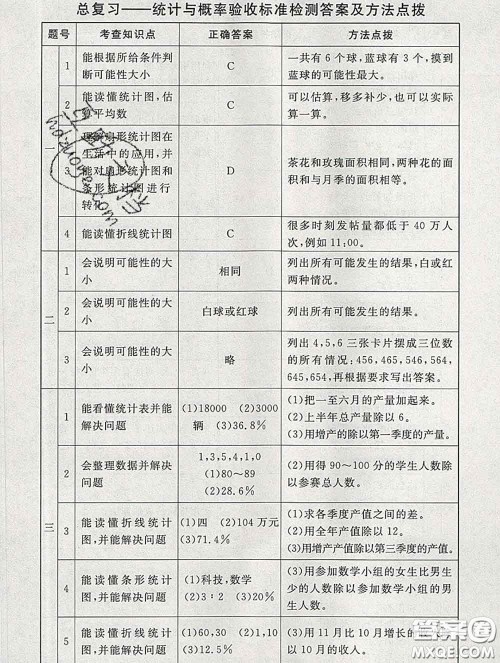 总复习——统计与概率验收标准检测答案及方法点拨
题号 考查知识点 正确答案 方法点拨
一
1 能根据所给条件判 C 一共有 6 个球,蓝球有 3 个,摸到
断可能性大小 蓝球的可能性最大。
2 能读懂统计图,估 C 可以估算,移多补少,也可以实际
算平均数 算一算。
3 理解扇形统计图在
生活中的应用,并 D 茶花和玫瑰面积相同,两种花的面
能对扇形统计图和 积和与月季的面积相等。
条形统计图进行
转化
4 能读懂折线统计图 C 很多时刻发帖量都低于 40 万人
次,例如 11:00。
二
1 会说明可能性的大 相同 列出所有可能发生的结果,白或红
小 两种情况。
2 会说明可能性的大 白球或红球 列出所有可能发生的结果。
小
3 会说明可能性的大 略 列出 4,5,6 三张卡片摆成三位数
小 的所有情况:456,465,546,564,
645,654,再根据要求写出答案。
三
1 能看懂统计表并能 (1)18000 (2)3000 (1)把一至六月的产量加起来。
解决问题 辆 (3)36.8% (2)上半年总产量除以 6。
(3)用增产的除以第一季度的产量。
2 会整理数据并解决 1,3,5,4,1,0 (2)用得 90～100 分的学生人数除
问题 (1)80～89 以参赛总人数。
(2)28.6%
3 能读懂折线统计 (1)四 (2)104 万元 (1)求各季度产值之间的差。
图,并能解决问题 (3)71.4% (2)用全年产值除以 12。
(3)用增产产值除以第三季度的产值。
4 能读懂条形统计 (1)科技,数学 (3)用参加数学小组的女生比男生
图,并能解决问题 (2)3∶2 (3)20% 少的人数除以参加数学小组的男生
人数。
5 能读懂折线统计 (1)60,30 (2)1,10 (3)用 11 月比 10 月增长的
图,并能解决问题 (3)12.5% 以 10 月的
hdzuoye.com